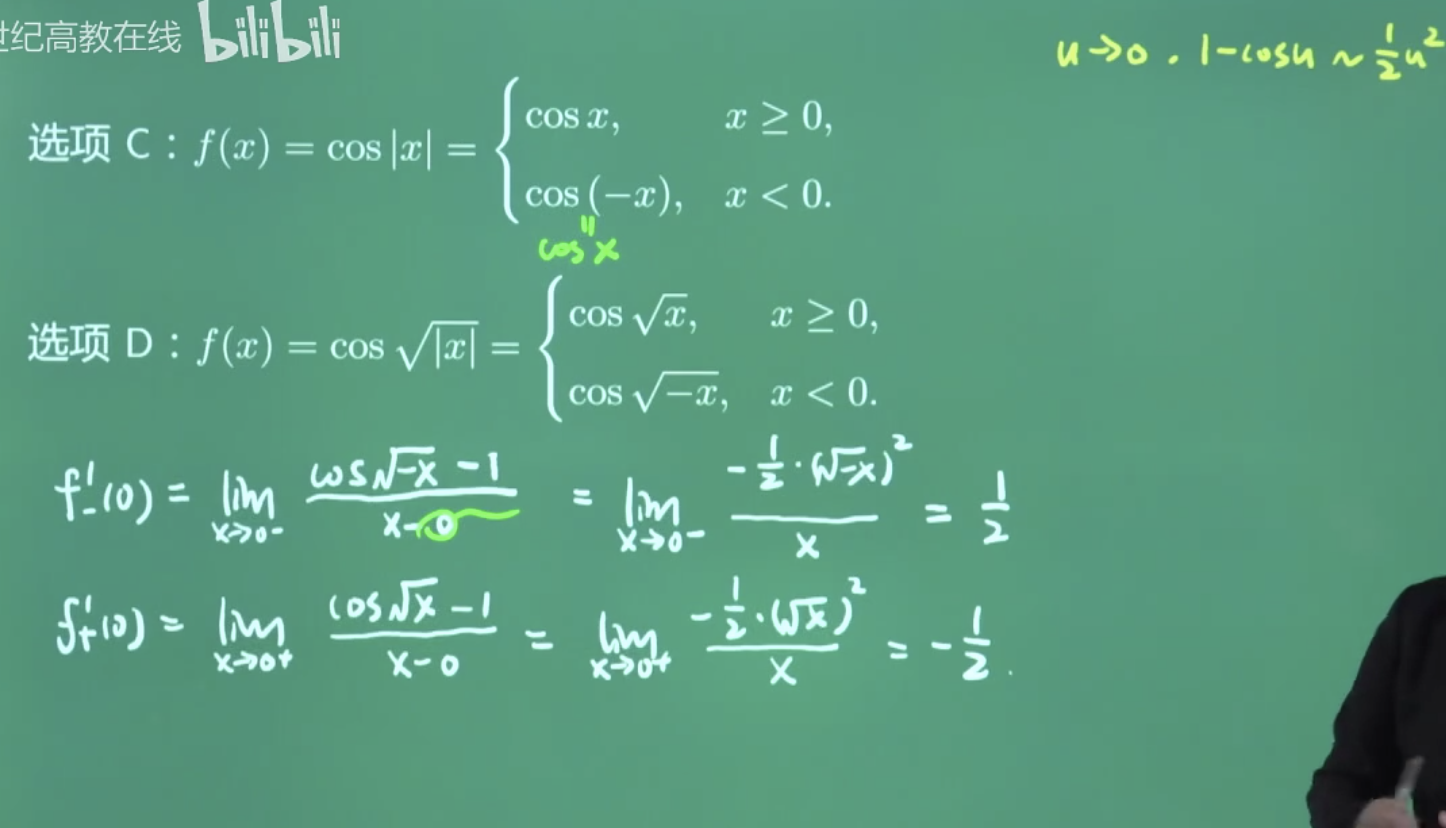 世纪高教在线 bilibili
u→0 . 1-cosu ~ 1/2 u²
选项 C：f(x) = cos|x| = { cos x, x ≥ 0,
cos (−x), x < 0.
" 
cos x
选项 D：f(x) = cos √|x| = { cos √x, x ≥ 0,
cos √−x, x < 0.
f'₋(0) = lim x→0- (cos√-x -1)/(x-0) = lim x→0- (-1/2·(√-x)²)/x = 1/2
f'₊(0) = lim x→0+ (cos√x -1)/(x-0) = lim x→0+ (-1/2·(√x)²)/x = -1/2.